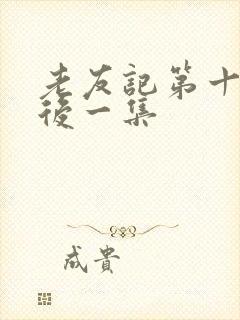 老友記第十
後一集
成貴